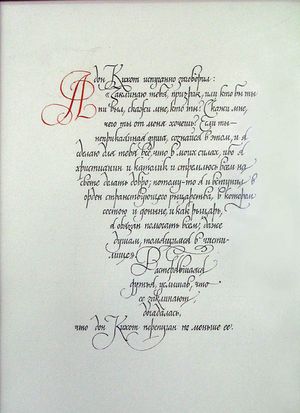 А дон Кихот испуганно заговорил:
"Заклинаю тебя, призрак, или кто бы ты
ни был, скажи мне, кто ты? Скажи мне,
чего ты от меня хочешь? Если ты –
неприкаянная душа, сознайся в этом, и я
сделаю для тебя всё, что в моих силах, ибо я
христианин и католик и стремлюсь всем на
свете делать добро; потому-то я и вступил в
орден странствующего рыцарства, в котором
состою и доныне, и как рыцарь,
я обязан помогать всем, даже
душам, томящимся в чисти-
лище".
Растерявшаяся
дуэнья, услышав, что
ее заклинают
догадалась,
что дон Кихот перепуган не меньше ее.